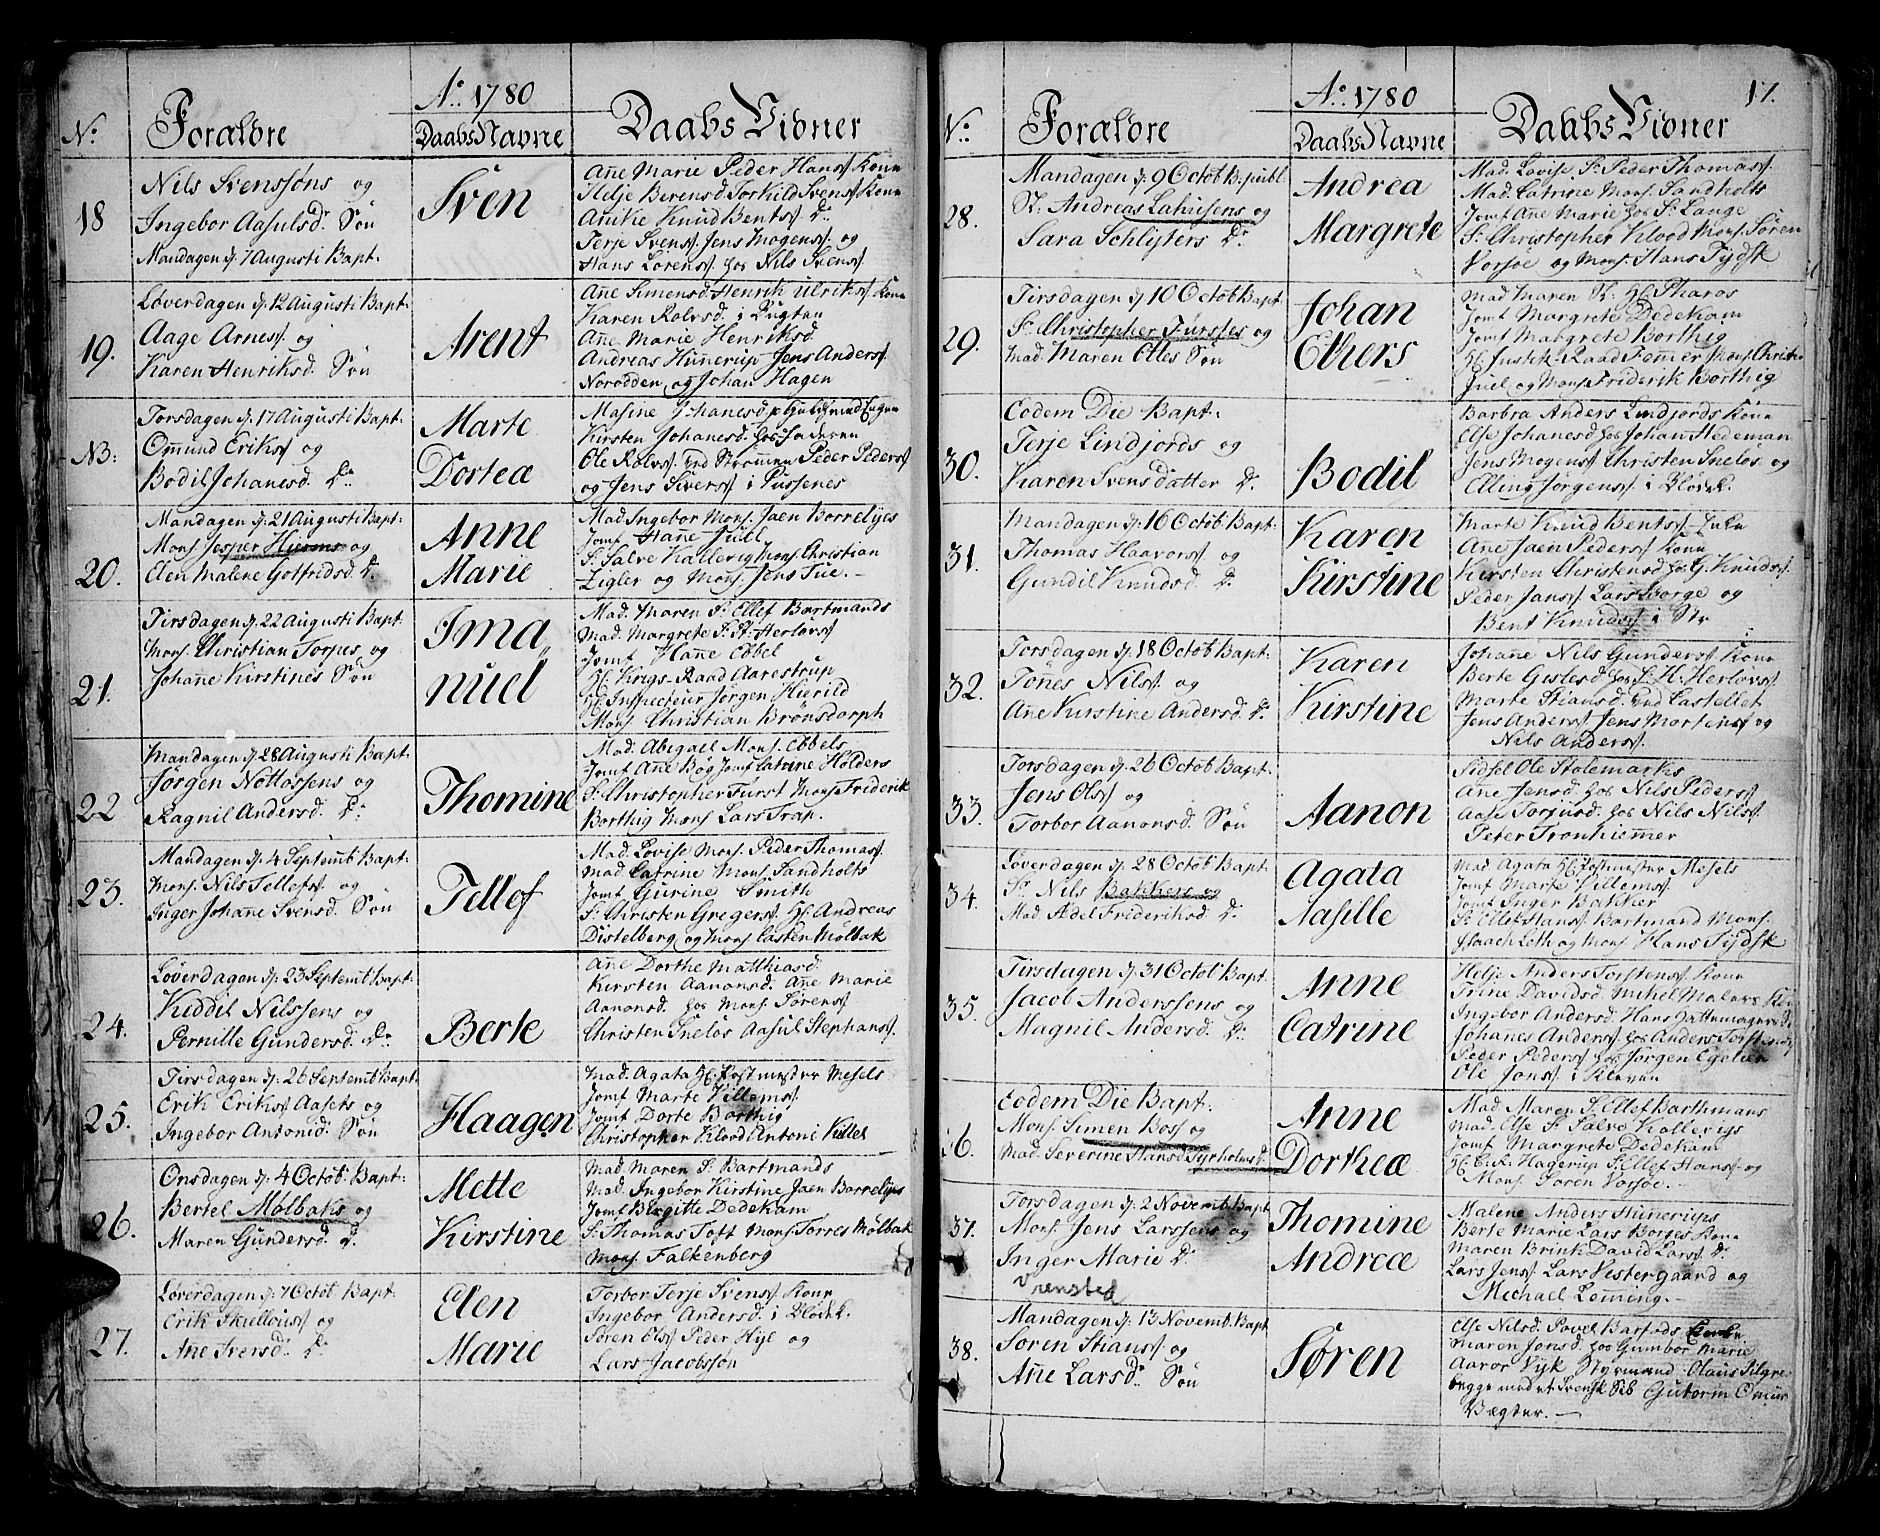 Ao. 1780
No.
Forældre
DaabsNavne
Daabs Vidner
18
Nils Svenssøns og
Ingebor Aasulsdr. Søn
Mandagen d. 7 Augusti Bapt.
Sven
Ane Marie Peder Hanss. Kone
Helje Berensd. Torkild Svens. Kone
Anike Knud Bents. Dr.
Terje Svens. Jens Mogens. og
Hans Lorens. hos Nils Svens.
19.
Løverdagen d. 12 Augusti Bapt:
Aage Arnes. og
Karen Henriksd. Søn
Arent
Ane Simensd. Henrik Ulriks. Kone
Karen Rolvsd. i Bugten
Ane Marie Henriksd.
Andreas Hunerup Jens Anders.
Norodden og Johan Hagen
N3:
Torsdagen d. 17 Augusti Bapt:
Omund Eriks. og
Bodil Johanesd. Dr.
Marte
Dorteæ
Masine Johanesd.
Kirsten Johanesd. hos
Ole Rolvs. ved Strommen Peder Peders.
og Jens Sivers. i Pussenes
20.
Mandagen d. 21 Augusti Bapt:
Mons. Jesper Hiorns og
Elen Malene Gotfridsd. Dr.
Anne
Marie
Mad. Ingebor Mons. Jaen Borreljes
Jomf. Hane Juel
Sr. Salve Kallevig Mons. Christian
Zigler og Mons. Jens Tue. –
21.
Tirsdagen d. 22 Augusti Bapt:
Mons. Christian Torpes og
Johane Kirstines Søn
Ima„
nuel
Mad. Maren Sr. Ellef Bartmands
Mad. Margrete Sr. St. Herlovs.
Jomf. Hane Ebbel
Hr. Krigs-Raad Aarestrup
Hr. Inspecteur Jørgen Hierild
Mons. Christian Brønsdorph
22
Mandagen d. 28 Augusti Bapt:
Jørgen Nottossens og
Ragnil Andersd. Dr.
Thomine
Mad. Abigael Mons. Ebbels
Jomf. Ane Bøg Jomf. Catrine Holders
Sr. Christopher Furst Mons. Friderik
Borthig Mons. Lars Trap.
23.
Mandagen d. 4 Septemb. Bapt:
Mons. Nils Tellefs. og
Inger Johane Svensd. Søn
Tellof
Mad. Lovise Mons. Peder Thomas.
Mad. Catrine Mons. Sandholts
Jomf. Gurine Smith
Sr. Christen Gregers. Hr. Andreas
Distelberg og Mons. Casten Mølbak
24.
Løverdagen d. 23 Septemt. Bapt:
Kiddil Nilssens og
Pernille Gundersd. Dr.
Berte
Ane Dorthe Matthiasd.
Kirsten Aanonsd. Ane Marie
Aanonsd. hos Mons. Sørens.
Christen Sneløs Aasul Stephans.
25.
Tirsdagen d. 26 Septemb. Bapt
Erik Eriks. Aasets og
Ingebor Antonid. Søn
Haagen
Mad. Agata Hr. Postmester Mesels
Jomf. Marte Villems.
Jomf. Dorte Borthig
Christopher Klovd Antoni Killel
26.
Onsdagen d. 4 Octob. Bapt:
Bertel Mølbaks og
Maren Gundersd. Dr.
Mette
Kirstine
Mad. Maren Sr. Bartmands
Mad. Ingebor Kirstine Jaen Borreljes
Jomf. Birgitte Dedekam
Sr. Thomas Toft Mons. Torres Mølbak
Mons. Falkenberg
27.
Løverdagen d. 7 Octob. Bapt:
Erik Skullouis. og
Ane Iversd. Dr.
Elen
Marie
Torbor Terje Svens. Kone
Ingebor Andersd. i Blødek.
Søren Ols. Peder Hyl og
Lars Jacobssøn
17.
Ao. 1780
No.
Forældre
DaabsNavne
Daabs Vidner
28.
Mandagen d. 9 Octob. B. publ.
Sr. Andreas Lahusens og
Sara Schlyters Dr.
Andrea
Margrete
Mad. Lovise Sr. Peder Thomas.
Mad. Catrine Mons. Sandholts
Jomf. Ane Marie hos Sr. Lange
Sr. Christopher Klood Mons. Søren
Vorsøe og Mons. Hans Tydsk
29.
Tirsdagen d. 10 Octob. Bapt
Sr. Christopher Furstes og
Mad. Maren Elles Søn
Johan
Ehlers
Mad. Maren Sr. Hr. Pharos
Jomf. Margrete Dedekam
Jomf. Margrete Borthig
Hr. Justit-Raad Femer Mons. Christ.
Juel og Mons. Friderik Borthig
30.
Eodem Die Bapt:
Terje Lindjords og
Karen Svens datter Dr.
Bodil
Barbra Anders Lindjords Kone
Else Johanesd. hos Johan Hedeman
Jens Mogens. Christen Sneløs og
Elling Jørgens. i Blødek.
31.
Mandagen d. 16 Octob. Bapt:
Thomas Haavors. og
Gundil Knudsd. Dr.
Karen
Kirstine
Marte Knud Bents. Enke
Ane Jaen Peders. Kone
Kirsten Christensd. hos G. Knuds.
Peder Jans. Lars Borge og
Bent Knuds. i Str
32.
Torsdagen d. 18 Octob. Bapt:
Tønes Nils. og
Ane Kirstine Andersd. Dr.
Karen
Kirstine
Johane Nils Gunders. Kone
Berte Gislesd. hos Sr. H. Herlovs.
Marte Stiansd. ved Castellet
Jens Anders. Jens Mortens. og
Nils Anders.
33.
Torsdagen d. 26 Octob. Bapt:
Jens Ols. og
Torbor Aanonsd. Søn
Aanon
Sidsel Ole Stolemarks
Ane Jensd. hos Nils Peders.
Aase Torjusd. hos Nils Nils.
Peter Tronhiemer
34.
Løverdagen d. 28 Octob. Bapt
Sr. Nils Bakkers og
Mad. Adel Frideriksd. Dr.
Agata
Aasille
Mad. Agata Hr. Postmester Mesels
Jomf. Marte Villems.
Jomf. Inger Bakker
Sr. Ellef Hans. Bartmand Mons.
Isaach Leth og Mons. Hans Tydsk
35.
Tirsdagen d. 31 Octob. Bapt.
Jacob Anderssøns og
Magnil Andersd. Dr.
Anne
Catrine
Helje Anders Torstens. Kone
Trine Davidsd. Mikel Malers
Ingebor Andersd. Hans Hattemagers
Johanes Anders. hos Anders Torstens.
Peder Peders. hos Jørgen Egelien
Ole Jons. i Kleven
36.
Eodem Die Bapt:
Mons. Simen Boss. og
Mad. Severine Hansd. Tyrholms Dr.
Anne
Dortheæ
Mad. Maren Sr. Ellef Barthmans
Mad. Else Sr. Salve Kallevigs
Jomf. Margrete Dedekam
Hr. C. L. Hagerup Sr. Ellef Hans. og
Mons. Søren Vorsøe. –
37.
Torsdagen d. 2 Novemb. Bapt
Mons. Jens Larssens og
Inger Marie Dr.
Vrensted
Thomine
Andreæ
Malene Anders Hunerups
Berte Marie Lars Borges Kone
Maren Brink David Lars. Dr.
Lars Jens. Lars Vestergaard og
Michael Loming. –
38.
Mandagen d. 13 Novemb. Bapt
Søren Stians. og
Ane Larsd. Søn
Søren
Else Nilsd. Povel Barfods Enke
Maren Jonsd. hos Gumbor Marie
Aaror Vyk Styrmand Olaus Silgre
begge med et Svensk Sib Gutorm Omur
Vægter. –